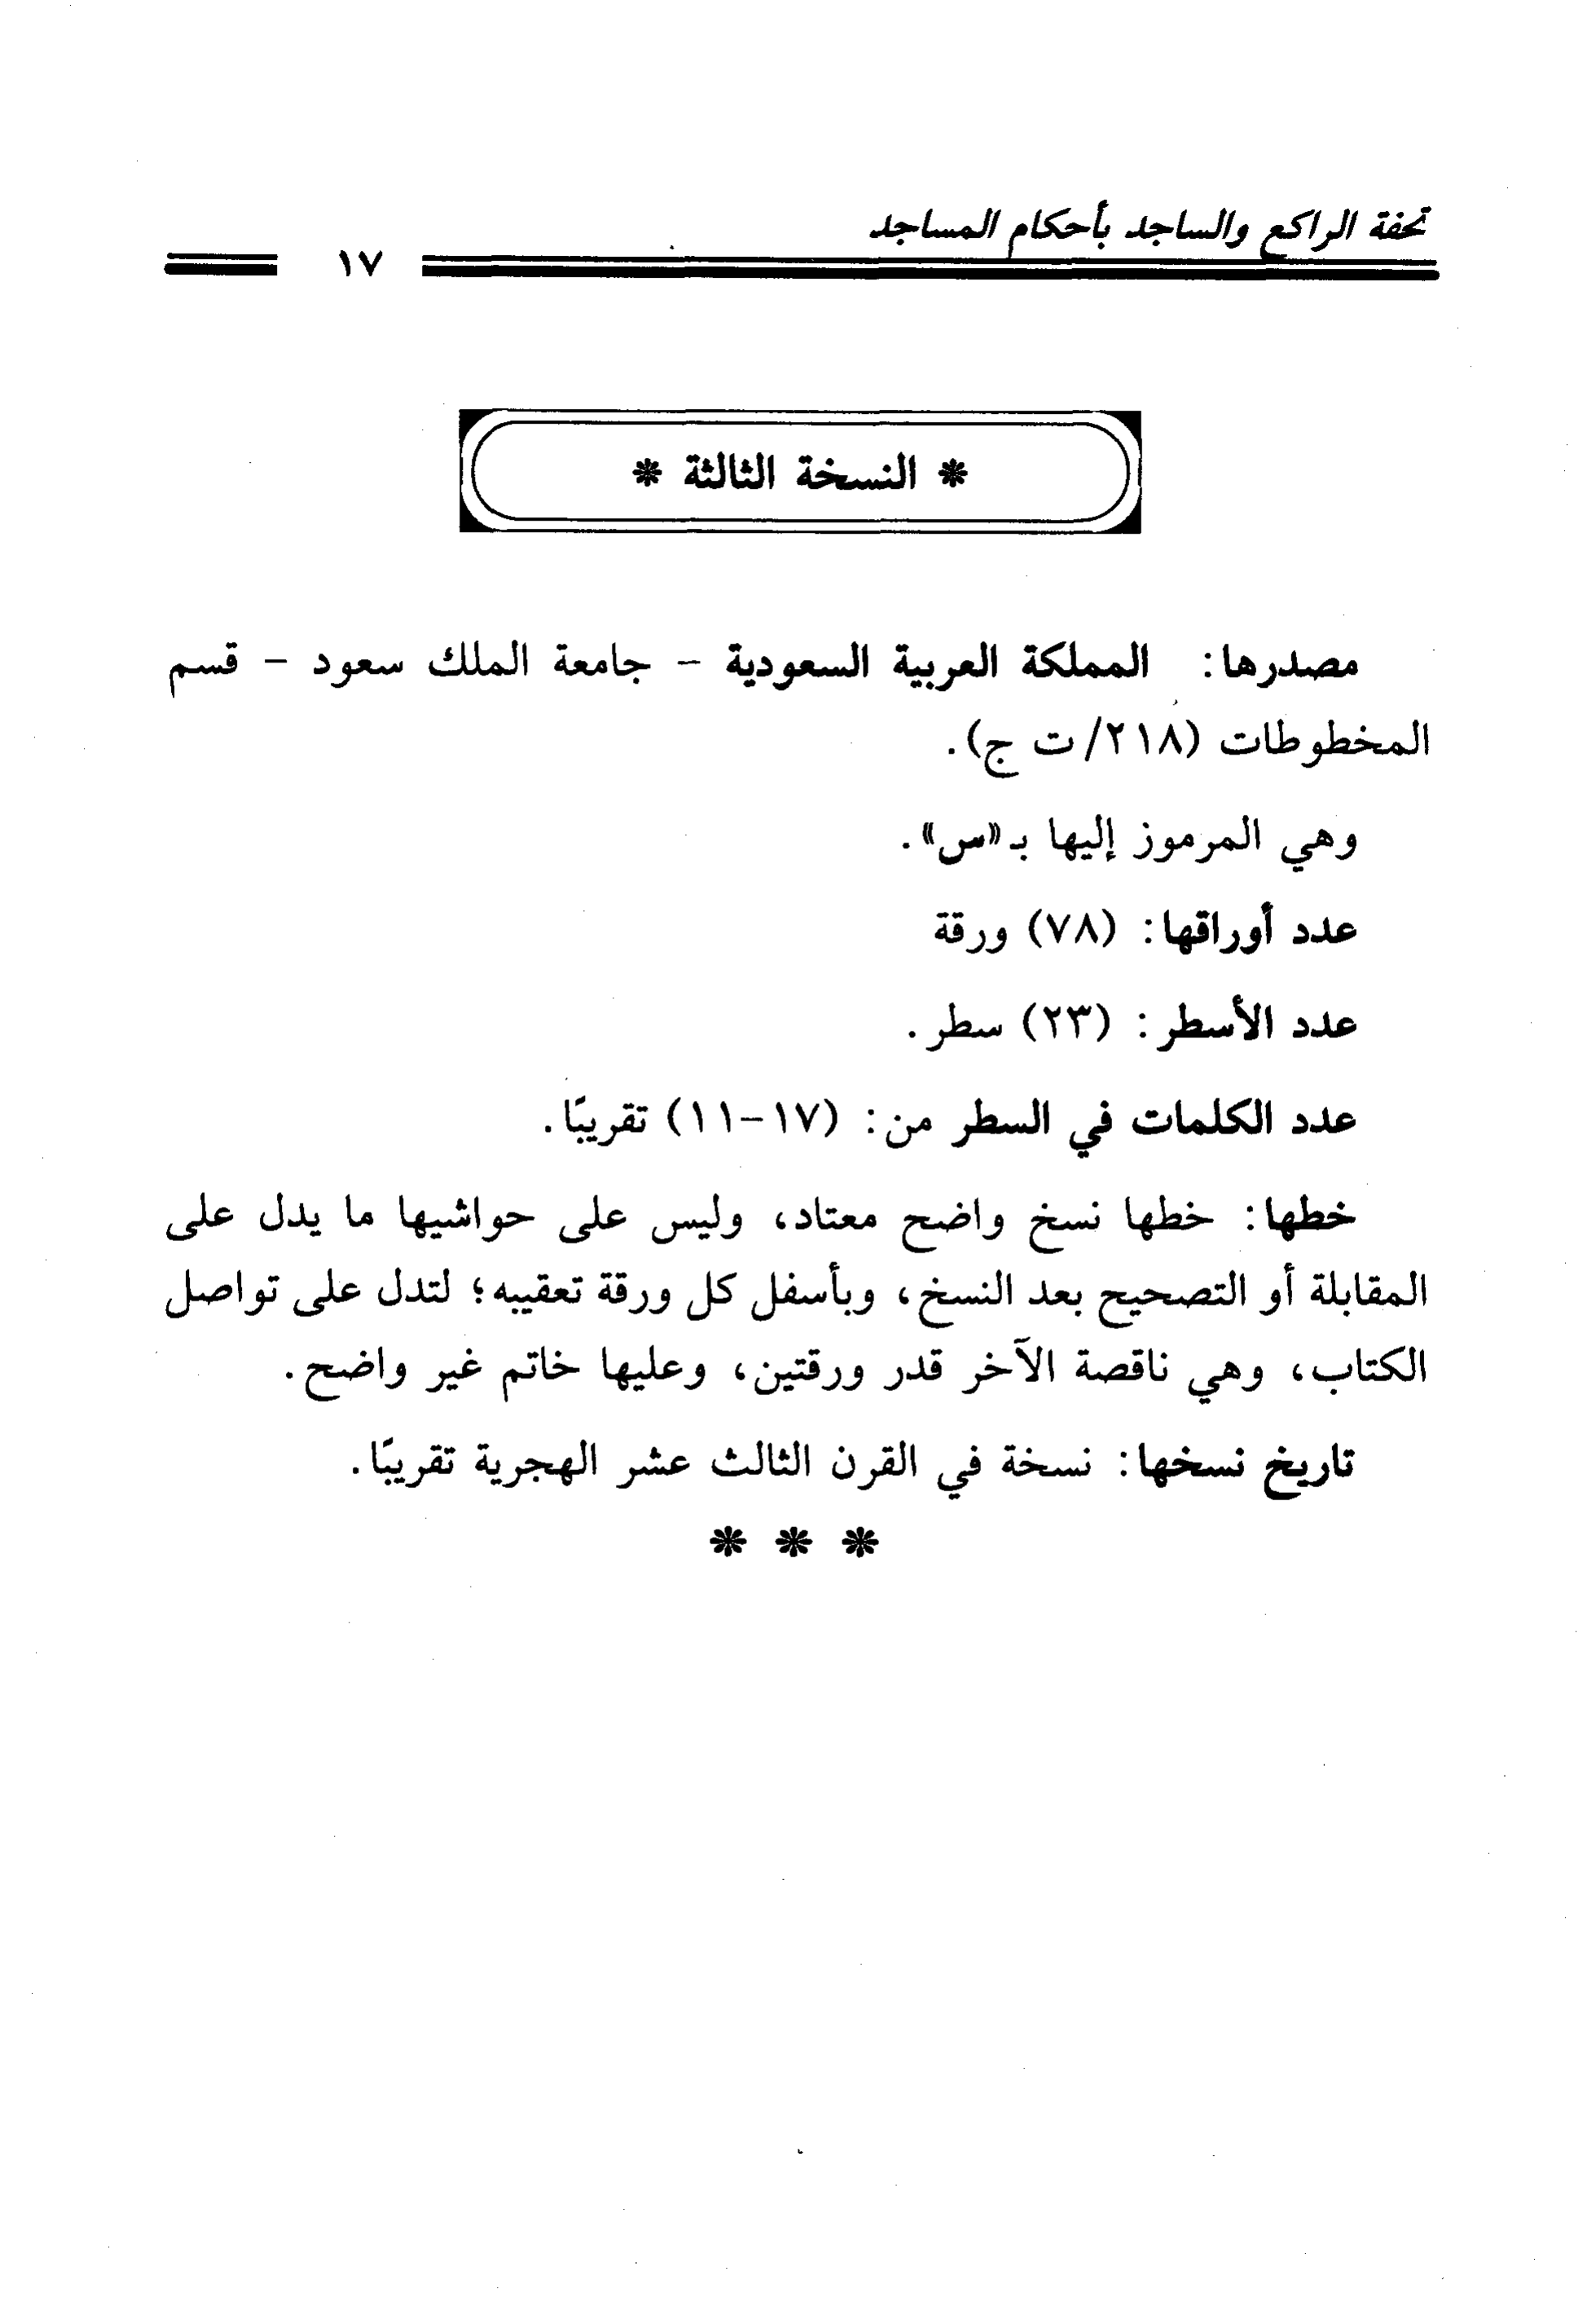 تحفة الراكع والساجد بأحكام المساجد
١٧
* النسخة الثالثة *
مصدرها: المملكة العربية السعودية - جامعة الملك سعود - قسم
المخطوطات (٢١٨/ ت ج).
وهي المرموز إليها بـ «س».
عدد أوراقها: (٧٨) ورقة
عدد الأسطر: (٢٣) سطر.
عدد الكلمات في السطر من: (١٧-١١) تقريبًا.
خطها: خطها نسخ واضح معتاد، وليس على حواشيها ما يدل على
المقابلة أو التصحيح بعد النسخ، وبأسفل كل ورقة تعقيبه؛ لتدل على تواصل
الكتاب، وهي ناقصة الآخر قدر ورقتين، وعليها خاتم غير واضح.
تاريخ نسخها: نسخة في القرن الثالث عشر الهجرية تقريبًا.
* * *